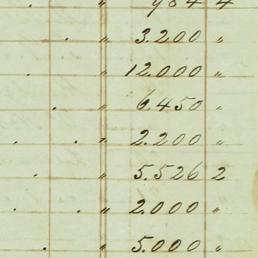 " 984 4
. " 3.200 "
. " 12.000 "
. " 6.450 "
. . " 2.200 "
. " 5.526 2
. . " 2.000 "
. " 5.000 "